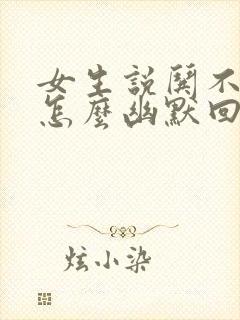 女生説関不
怎麼幽默回
炫小染